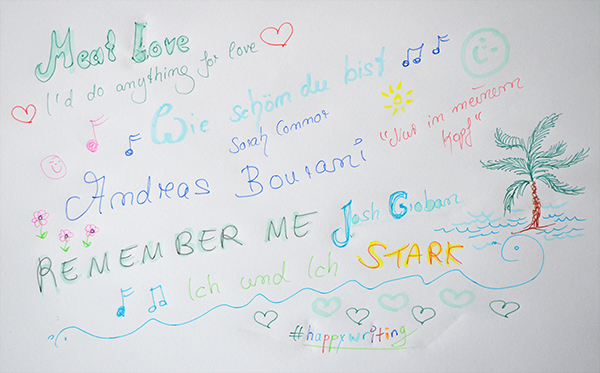 Meat Love
I'd do anything for love
Wie schön du bist
Sarah Connor
"Nur in meinem
Kopf"
Andreas Bourani
REMEMBER ME Josh Groban
Ich und Ich STARK
#happywriting